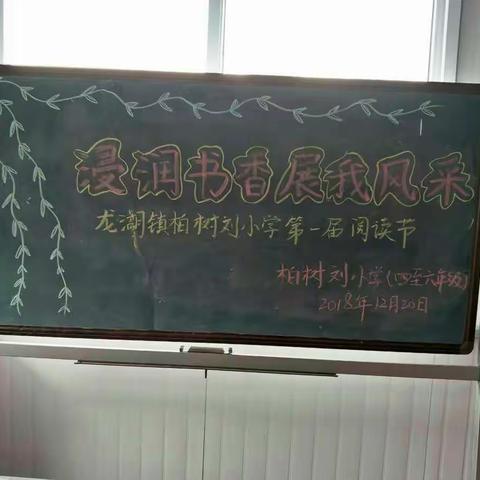 浸润书香展我风采
龙湖镇柏树刘小学第一届阅读节
柏树刘小学(四至六年级)
2018年12月20日